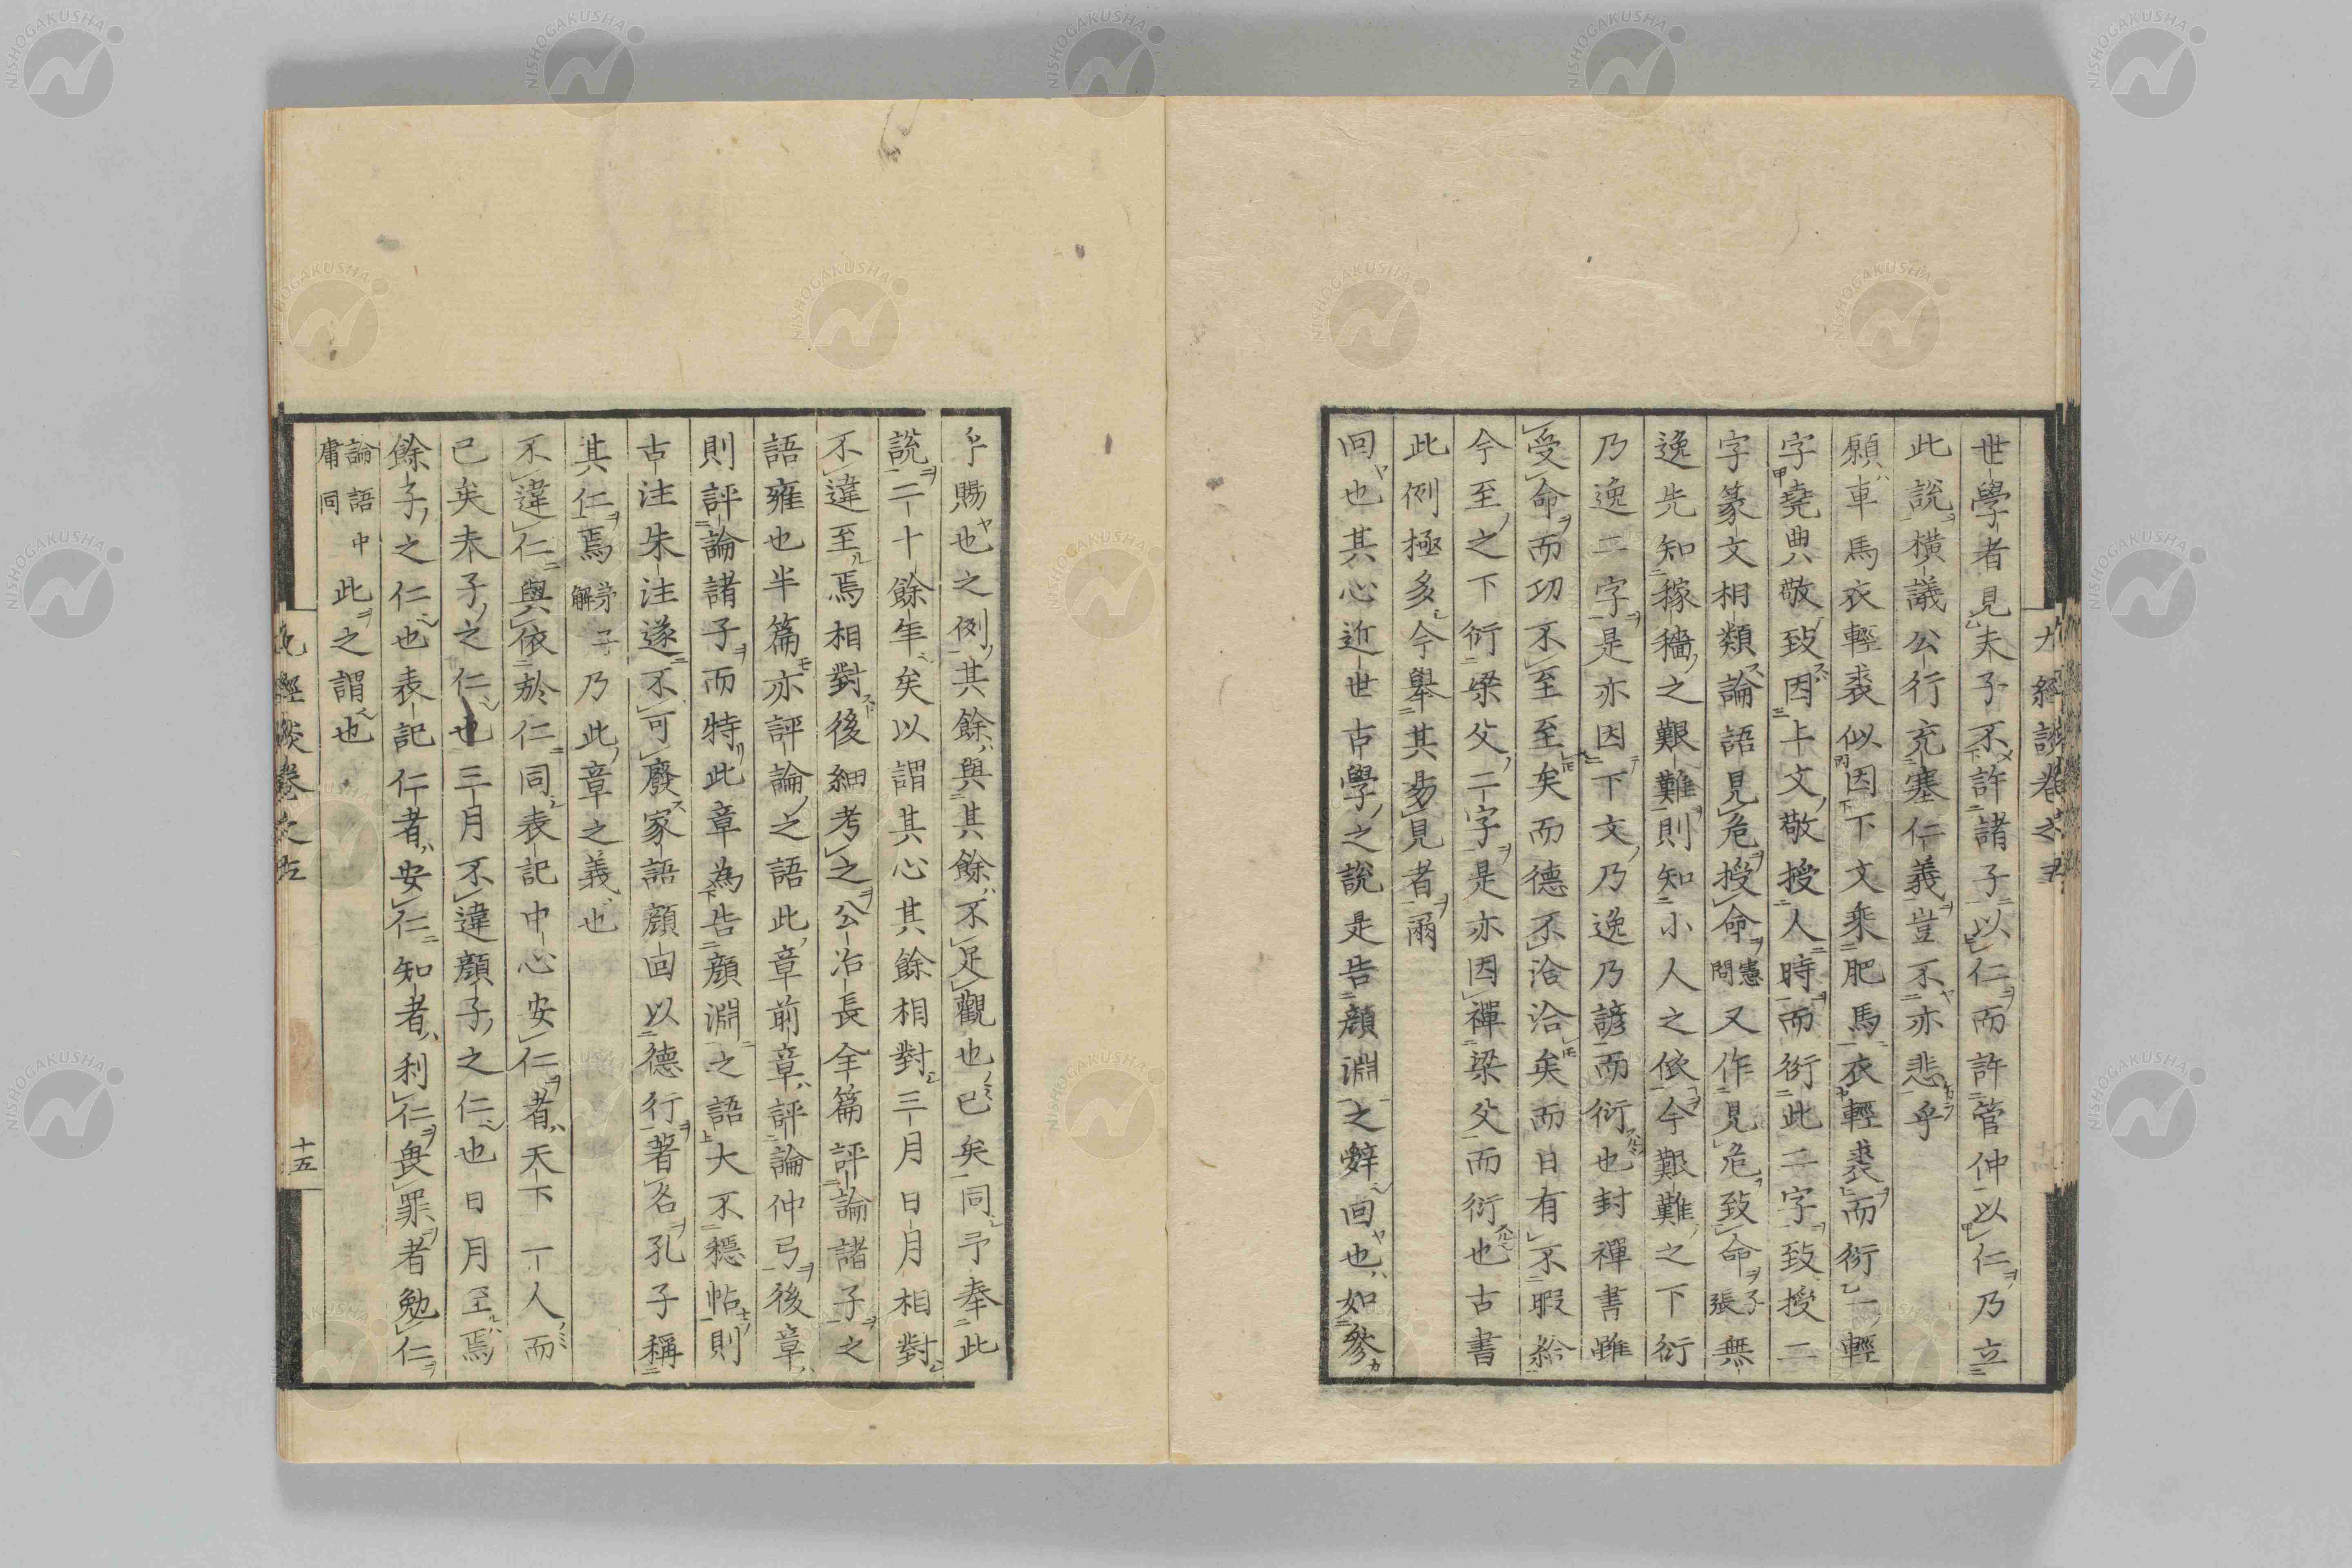 九經談卷之五
世學者見朱子不許諸子以仁而許管仲以仁乃立
此說橫議公行充塞仁義豈不亦悲乎
願車馬衣輕裘似因下文乘肥馬衣輕裘而衍一輕
字堯典敬致因上文敬授人時而衍此二字致授二
字篆文相類論語見危授命憲問又作見危致命子張無
逸先知稼穡之艱難則知小人之依今艱難之下衍
乃逸二字是亦因下文乃逸乃諺而衍也封禪書雖
受命而功不至至矣而德不洽洽矣而日有不暇給
今至之下衍梁父二字是亦因禪梁父而衍也古書
此例極多今舉其易見者爾
回也其心近世古學之說是告顏淵之辭回也如參
乎賜也之例其餘與其餘不足觀也已矣同予奉此
說二十餘年矣以謂其心其餘相對三月日月相對
不違至焉相對後細考之公冶長全篇評論諸子之
語雍也半篇亦評論之語此章前章評論仲弓後章
則評論諸子而特此章為告顏淵之語大不穩帖則
古注朱注遂不可廢家語顏回以德行著名孔子稱
其仁焉弟子解乃此章之義也
不違仁與依於仁同表記中心安仁者天下一人而
已矣朱子之仁也三月不違顏子之仁也日月至焉
餘子之仁也表記仁者安仁知者利仁畏罪者勉仁
論語中庸同此之謂也
九經談卷之五
十五
NISHOGAKUSHA